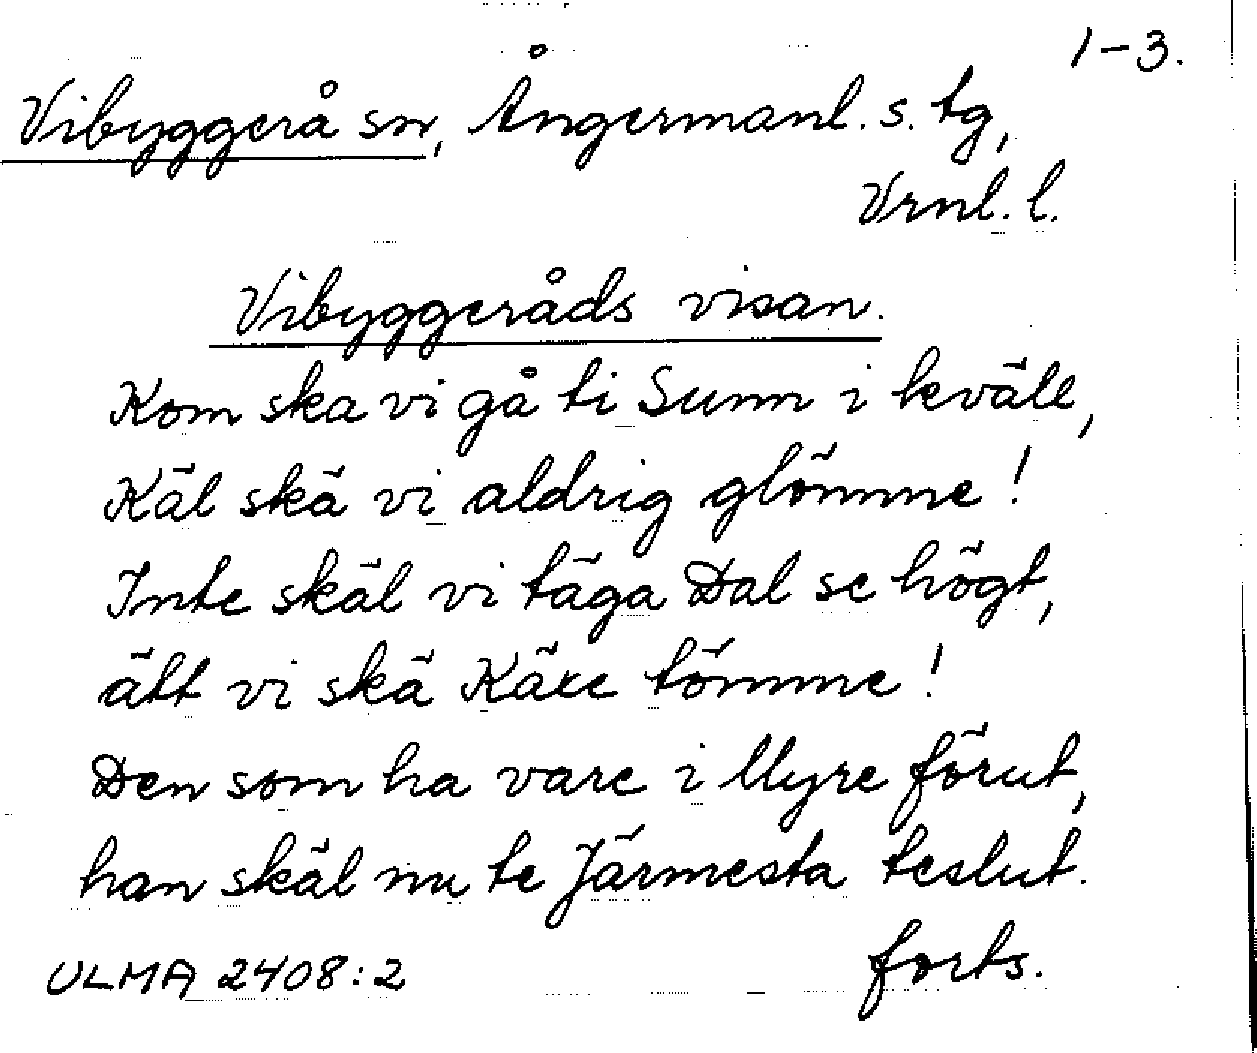 1-3.
Vibyggerå sn, Ångermanl. s. tg,
Vrnl. l.
Vibyggeråds visan.
Kom ska vi gå ti Sunn i kväll,
Käl skä vi aldrig glömme!
Inte skäl vi täga Dal se högt,
ätt vi skä Käre tömme!
Den som ha vare i Myre förut,
han skäl nu te Järmesta teslut.
forts.
ULMA 2408:2